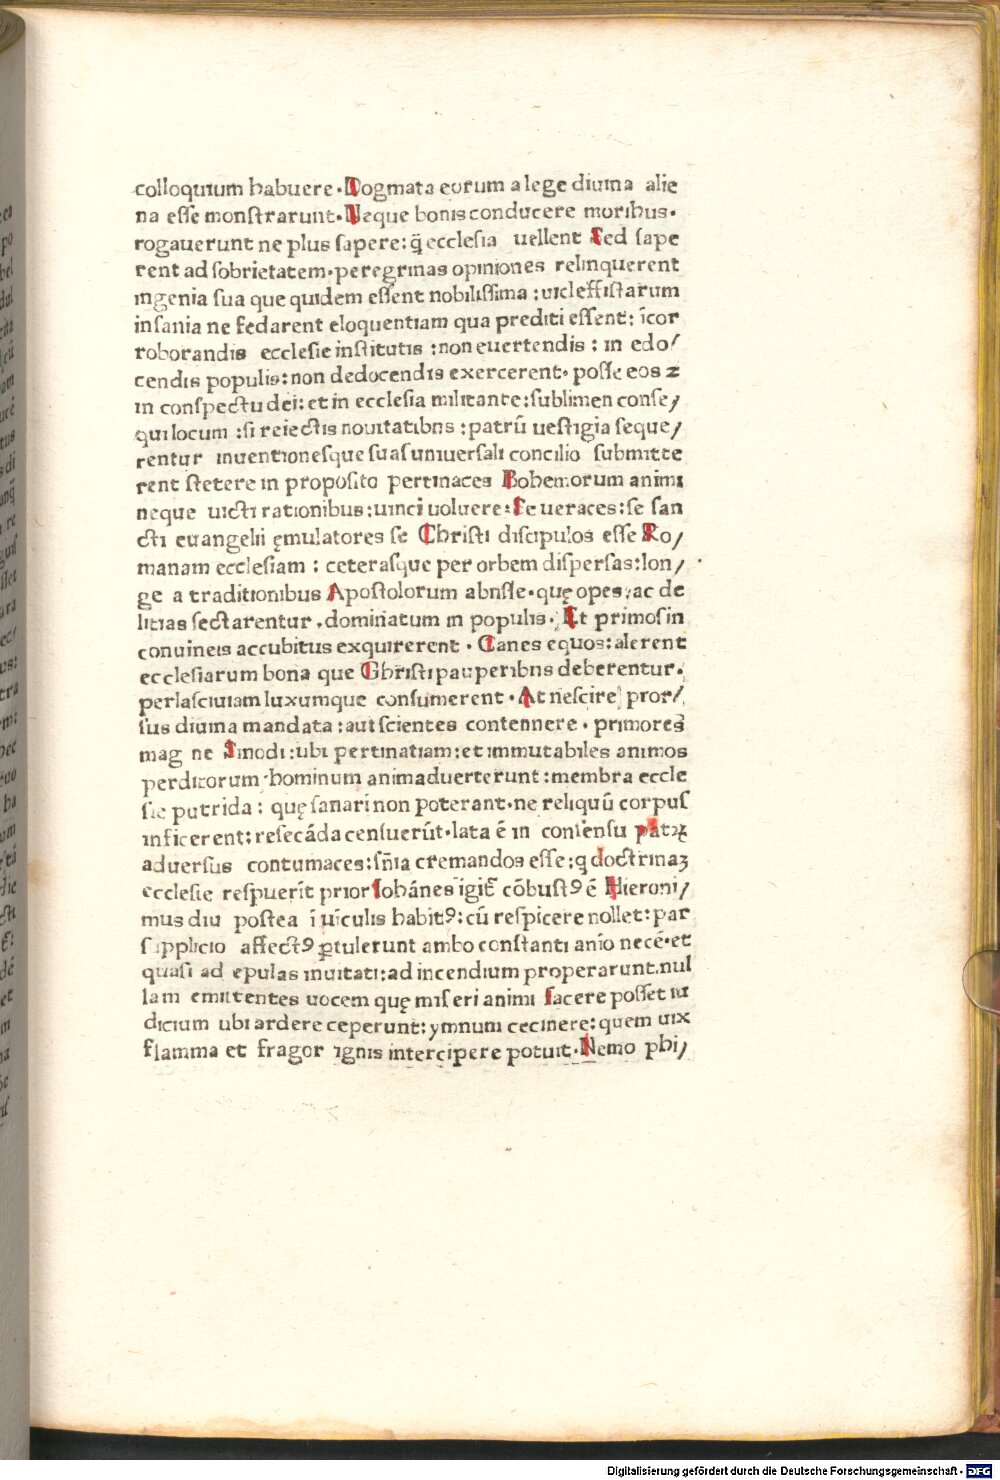 colloquium habuere·Dogmata eorum a lege diuina alie
na esse monstrarunt·Neque bonis conducere moribus·
rogauerunt ne plus sapere:q̄ ecclesia uellent Sed sape
rent ad sobrietatem·peregrinas opiniones relinquerent
ingenia sua que quidem essent nobilissima:uicleffistarum
insania ne fedarent eloquentiam qua prediti essent: īcor
roborandis ecclesie institutis :non euertendis: in edo/
cendis populis:non dedocendis exercerent· posse eos z
in conspectu dei:et in ecclesia militante:sublimen conse/
qui locum :si reiectis nouitatibns :patrū uestigia seque/
rentur inuentionesque suas uniuersali concilio submitte
rent stetere in proposito pertinaces Bohemorum animi
neque uicti rationibus:uinci uoluere:Se ueraces:se san
cti euangelii ęmulatores se Christi discipulos esse Ro/
manam ecclesiam : ceterasque per orbem dispersas:lon/
ge a traditionibus Apostolorum abnsse·quę opes:ac de
litias sectarentur.dominatum in populis· Et primos in
conuineis accubitus exquirerent · Canes equos:alerent
ecclesiarum bona que Ghristi pauperibns deberentur.
perlasciuiam luxumque consumerent·At nescire pror/
sus diuina mandata:aut scientes contennere· primores
mag ne Sinodi:ubi pertinatiam:et immutabiles animos
perditorum hominum animaduerterunt:membra eccle
sie putrida: quę sanari non poterant·ne reliquū corpus
inficerent:resecāda censuerūt·lata ē in consensu patꝝ
aduersus contumaces:sn̄ia cremandos esse:q doctrinaʒ
ecclesie respuerīt prior Iohānes igit̄ cōbustꝯ ē Hieroni/
mus diu postea ī uīculis habitꝯ:cū respicere nollet:par
sipplicio affectꝯ ꝓtulerunt ambo constanti anīo necē·et
quasi ad epulas inuitati:ad incendium properarunt.nul
lam emittentes uocem quę miseri animi facere posset in
dicium ubi ardere ceperunt:ymnum cecinere:quem uix
flamma et fragor ignis intercipere potuit·Nemo phi/
Digitalisierung gefördert durch die Deutsche Forschungsgemeinschaft - DFG